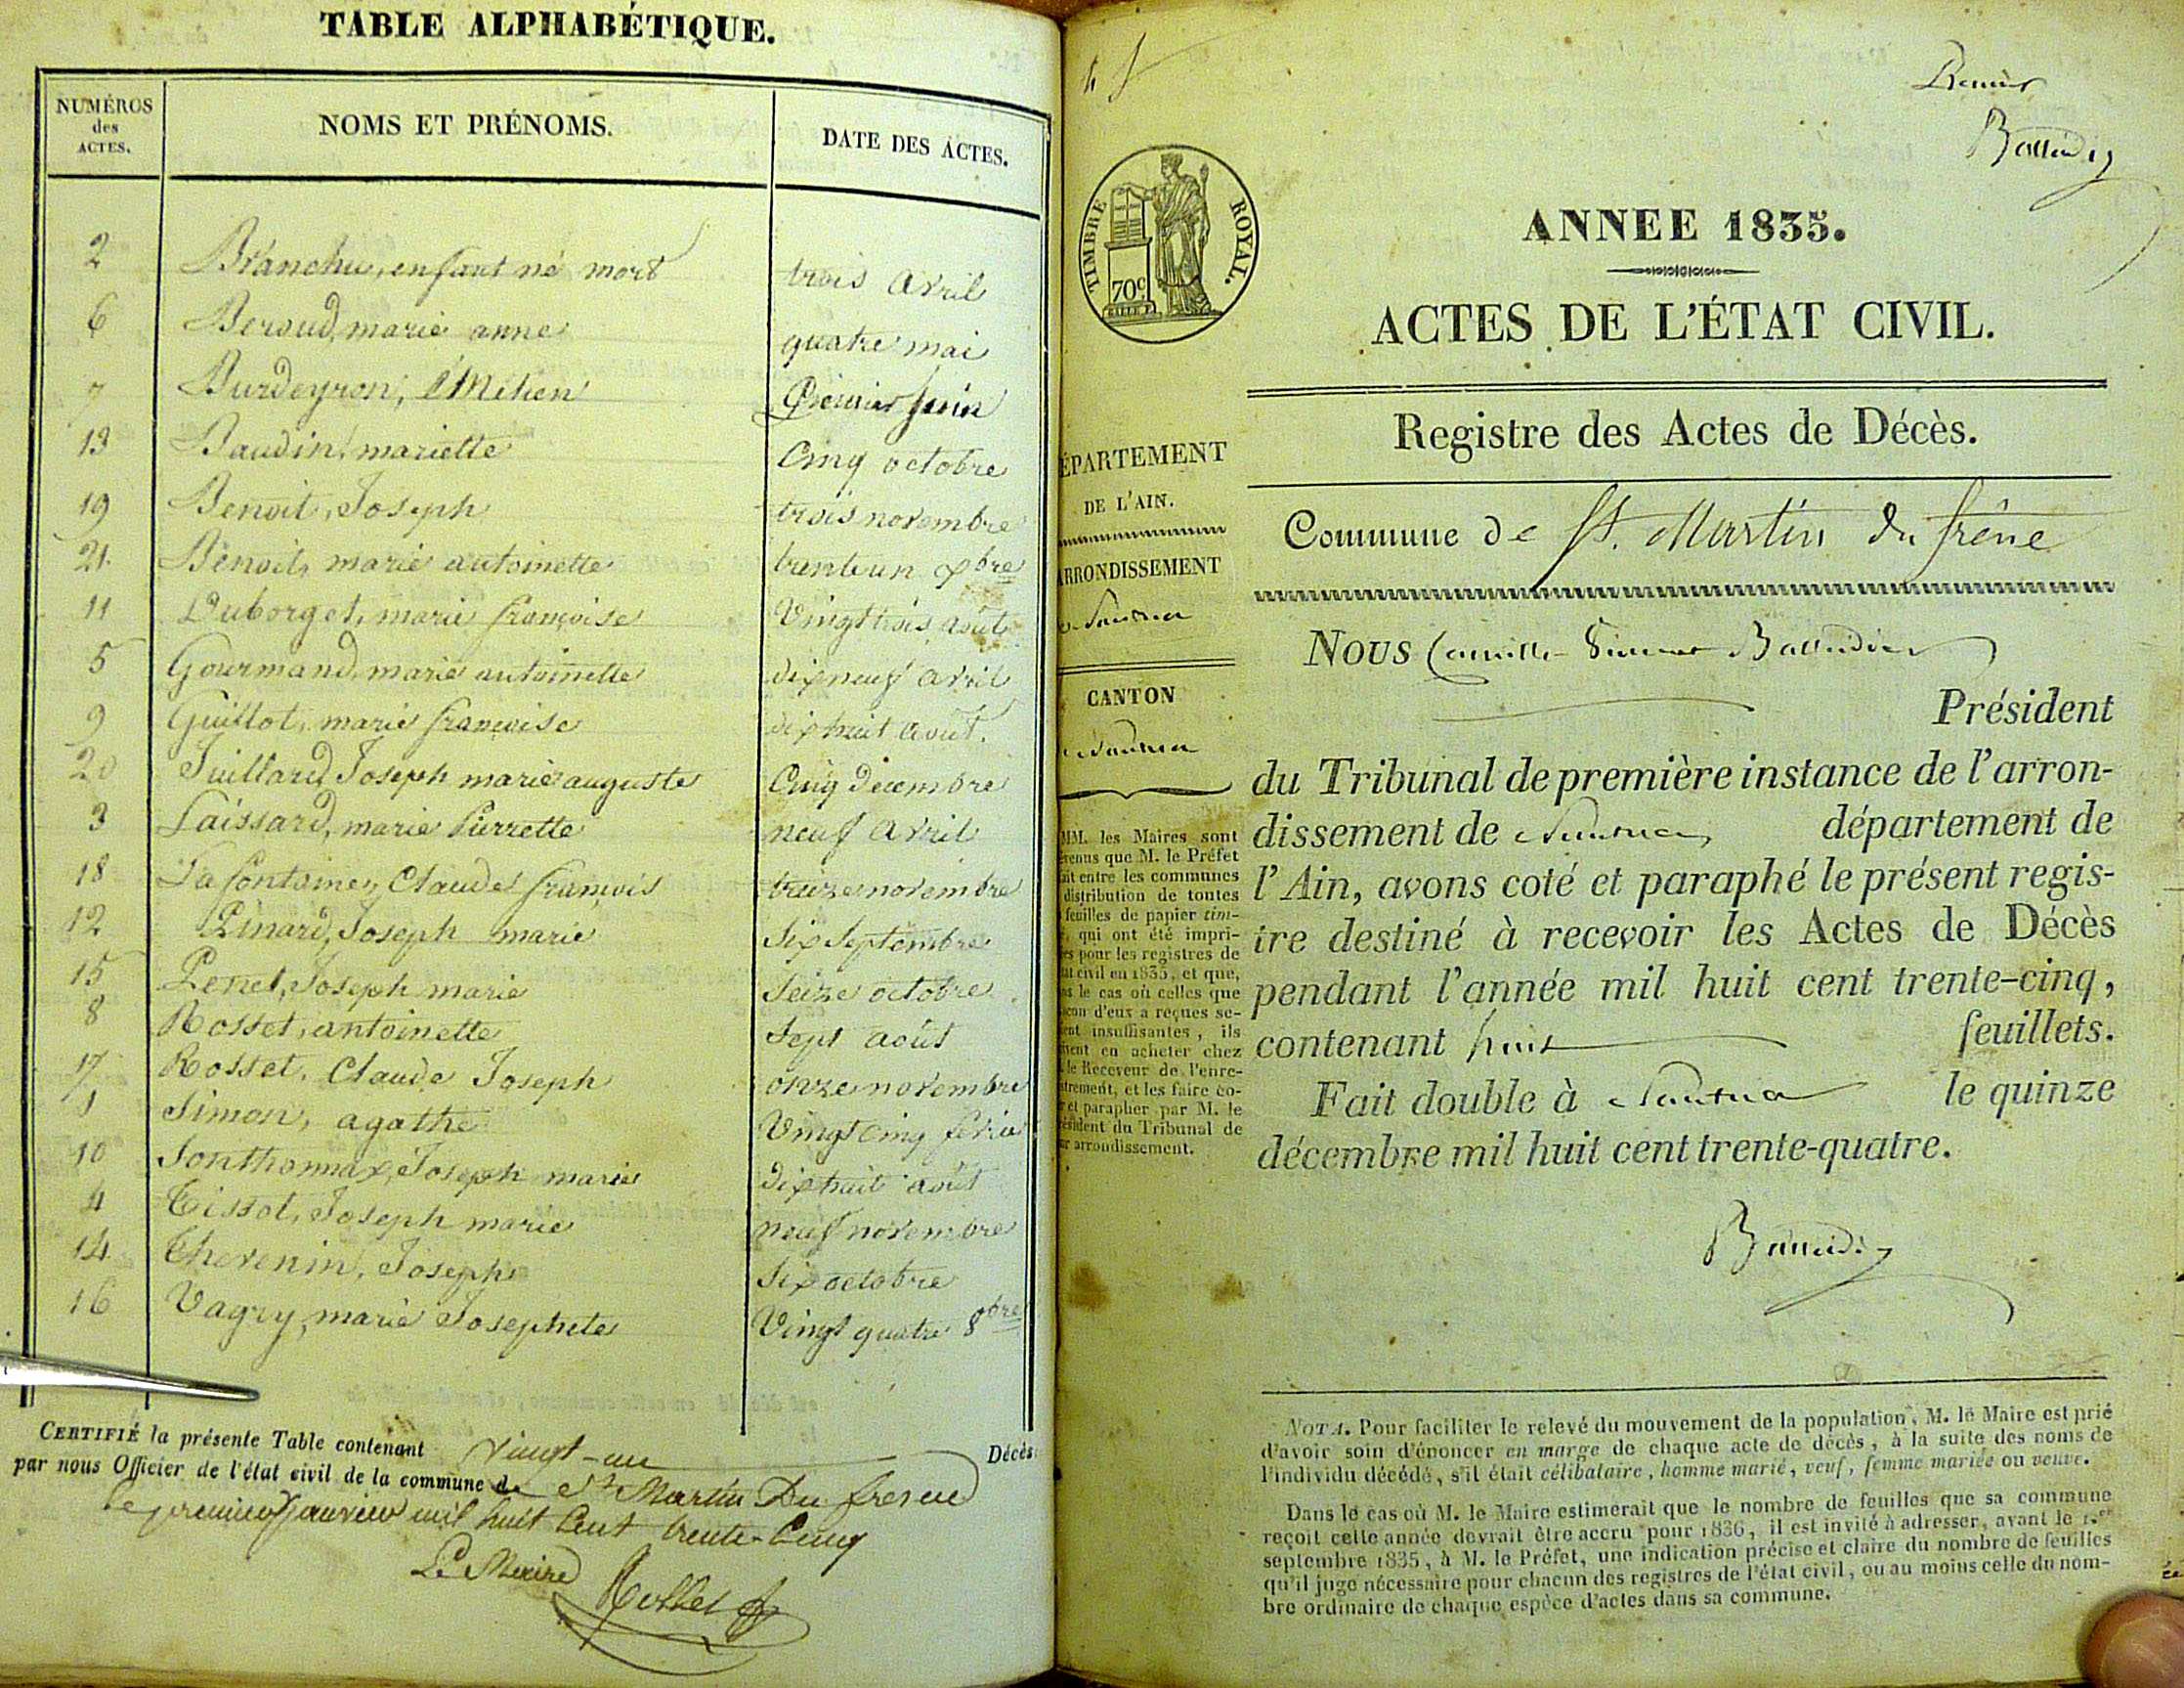 TABLE ALPHABÉTIQUE.
NUMÉROS des ACTES.
NOMS ET PRÉNOMS.
DATE DES ACTES.
2 Branchu, enfant né mort trois avril
6 Beroud, marie anne quatre mai
7 Burdeyron, Premier juin
13 Baudin, mariette Cinq octobre
19 Benoit, Joseph trois novembre
21. Benoit, marie antoinette trente un Xbre
11 Duborget, marie françoise Vingt trois août
5 Gourmand, marie antoinette dix neuf avril
9 Guillot, marie françoise dix huit août.
20 Juillard, Joseph marie auguste Cinq Décembre
3 Laissard, marie Pierrette neuf avril
18 La fontaine, Claude françois treize novembre
12 Pinard, Joseph marie Six Septembre
15 Penet, Joseph marie Seize octobre
8 Rosset, antoinette Sept août
17 Rosset, Claude Joseph onze novembre
1 Simon, agathe Vingt cinq
10 Sonthonnax, Joseph marie dix huit août
4 Tissot, Joseph marie neuf novembre
14 Thevenin, Joseph Six octobre
16 Vagry, marie Josephete Vingt quatre 8bre
CERTIFIÉ la présente Table contenant Vingt-un Décès
par nous Officier de l'état civil de la commune de St Martin Du fresne
le premier janvier mil huit Cent trente-Cinq
Le Maire
Premier
ANNEE 1835.
TIMBRE ROYAL.
70c
ACTES DE L'ÉTAT CIVIL.
Registre des Actes de Décès.
ÉPARTEMENT
DE L'AIN.
ARRONDISSEMENT
CANTON
MM. les Maires sont
venus que M. le Préfet
ait entre les communes
distribution de toutes
feuilles de papier tim-
, qui ont été impri-
es pour les registres de
at civil en 1835, et que,
ns le cas où celles que
acun d'eux a reçues se-
ent insuffisantes, ils
ient en acheter chez
le Receveur de l'enre-
strement, et les faire co-
r et parapher par M. le
ésident du Tribunal de
ur arrondissement.
Commune de St. Martin du frêne
Nous Camille
Président
du Tribunal de première instance de l'arron-
dissement de Nantua, département de
l'Ain, avons coté et paraphé le présent regis-
tre destiné à recevoir les Actes de Décès
pendant l'année mil huit cent trente-cinq,
contenant huit feuillets.
Fait double à Nantua le quinze
décembre mil huit cent trente-quatre.
NOTA. Pour faciliter le relevé du mouvement de la population, M. le Maire est prié
d'avoir soin d'énoncer en marge de chaque acte de décès, à la suite des noms de
l'individu décédé, s'il était célibataire, homme marié, veuf, femme mariée ou veuve.
Dans le cas où M. le Maire estimerait que le nombre de feuilles que sa commune
reçoit cette année devrait être accru pour 1836, il est invité à adresser, avant le 1.er
septembre 1835, à M. le Préfet, une indication précise et claire du nombre de feuilles
qu'il juge nécessaire pour chacun des registres de l'état civil, ou au moins celle du nom-
bre ordinaire de chaque espèce d'actes dans sa commune.